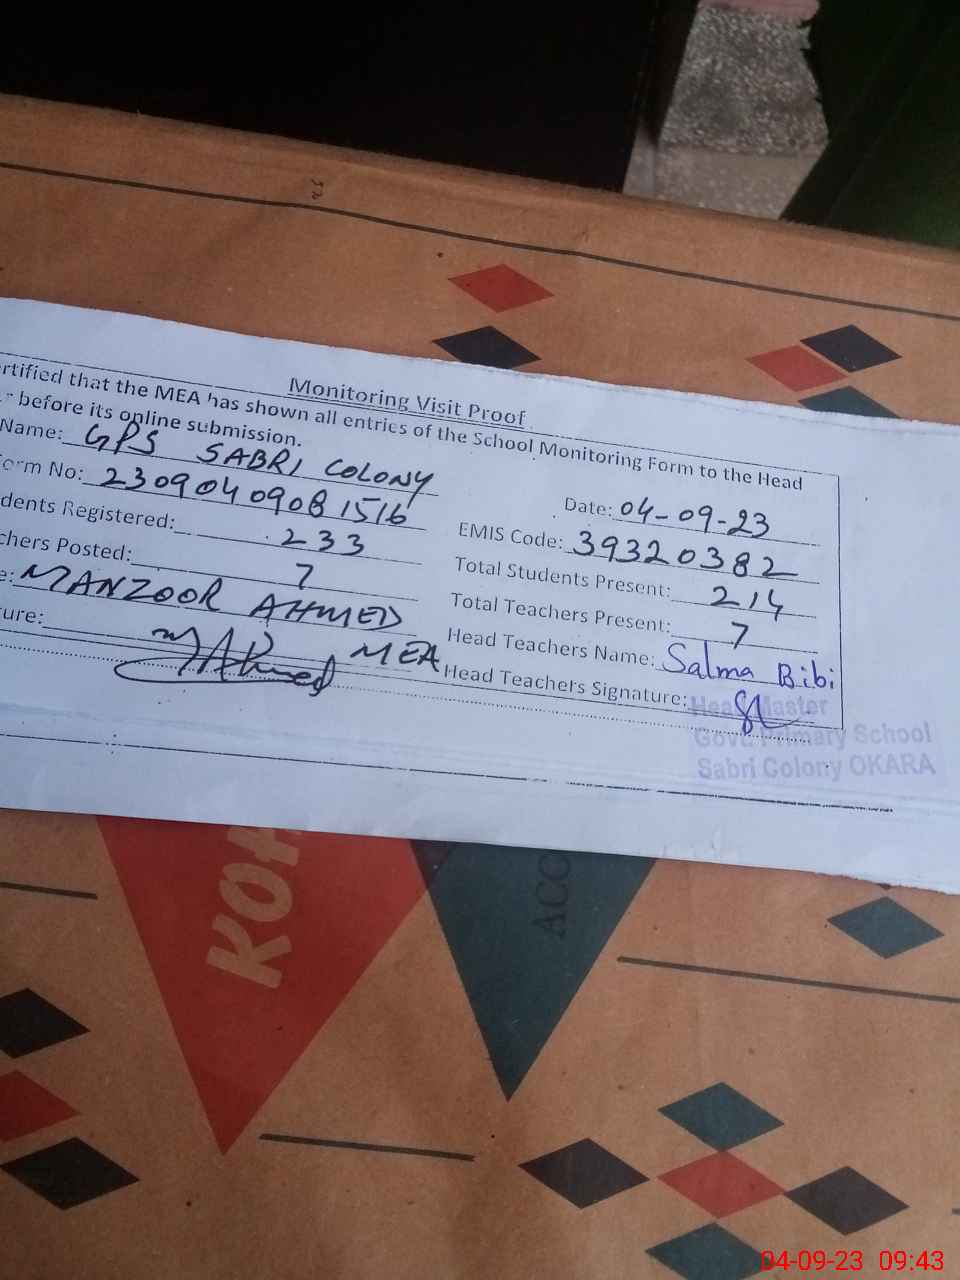 Monitoring Visit Proof
rtified that the MEA has shown all entries of the School Monitoring Form to the Head
before its online submission.
Name: GPS SABRI COLONY
Date: 04-09-23
orm No: 2309040908 1516
EMIS Code: 39320382
dents Registered: 233
Total Students Present: 214
chers Posted: 7
Total Teachers Present: 7
e: MANZOOR AHMED
Head Teachers Name: Salma Bibi
ture: MAhmed MEA
Head Teachers Signature:
Head Master
Govt. Primary School
Sabri Colony OKARA
KOH
ACC
04-09-23 09:43